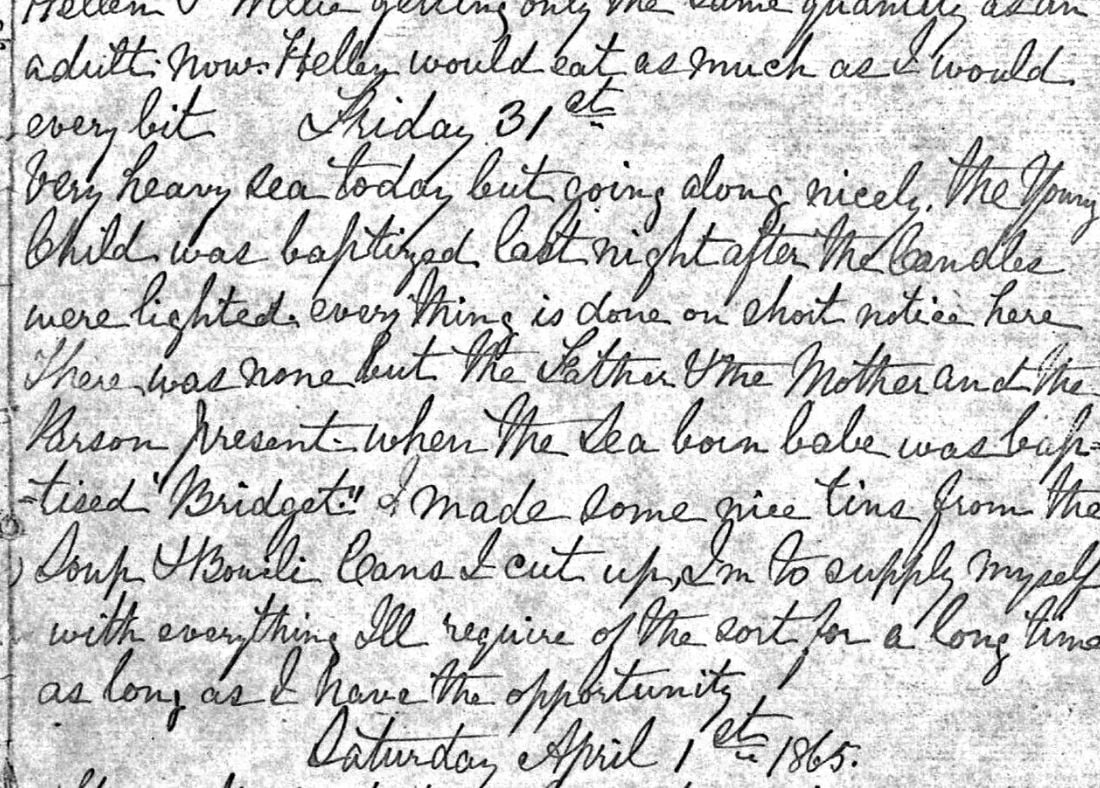 Hellen & Willie getting only the same quantity as an
adult. now. Hellen would eat as much as I would
every bit Friday 31st
Very heavy sea today but going along nicely. The Young
Child was baptized last night after the Candles
were lighted. everything is done on short notice here
There was none but the Father & the Mother and the
Parson present. when the Sea born babe was bap=
=tised "Bridget." I made some nice tins from the
Soup & Bouili Cans I cut up, I'm to supply myself
with everything Ill require of the sort for a long time
as long as I have the opportunity!
Saturday April 1st 1865.